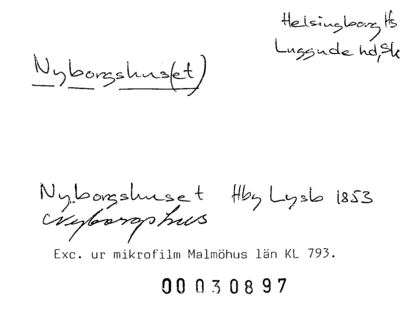 Helsingborg Hs
Luggude hd, Sk
Nyborgshus(et)
Nyborgshuset Hby Lysb 1853
Nyborgshus
Exc. ur mikrofilm Malmöhus län KL 793.
00030897